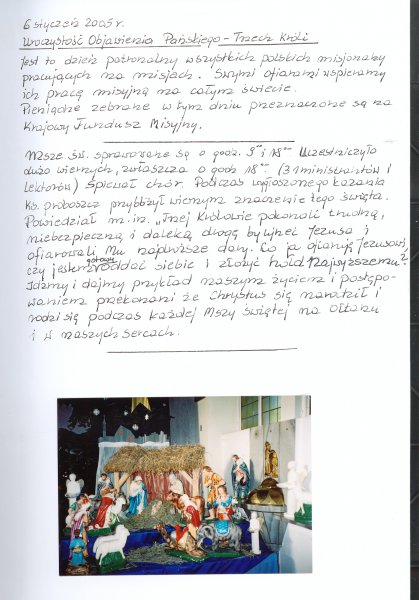 6 styczeń 2005 r.
Uroczystość Objawienia Pańskiego - Trzech Króli
Jest to dzień patronalny wszystkich polskich misjonarzy
pracujących na misjach. Swymi ofiarami wspieramy
ich pracę misyjną na całym świecie.
Pieniądze zebrane w tym dniu przeznaczone są na
Krajowy Fundusz Misyjny.
Msze św. sprawowane są o godz. 9°° i 18°° Uczestniczyło
dużo wiernych, zwłaszcza o godz 18°° (31 ministrantów i
lektorów) śpiewał chór. Podczas wygłoszonego kazania
Ks. proboszcz przybliżył wiernym znaczenie tego święta.
Powiedział m.in. „Trzej Królowie pokonali trudną,
niebezpieczną i daleką drogę by ujrzeć Jezusa i
ofiarowali Mu najdroższe dary. Co ja ofiaruję Jezusowi,
czy jestem gotowy oddać siebie i złożyć hołd Najwyższemu?
Idźmy i dajmy przykład naszym życiem i postępo-
waniem przekonani że Chrystus się narodził i
rodzi się podczas każdej Mszy świętej na ołtarzu
i w naszych sercach.